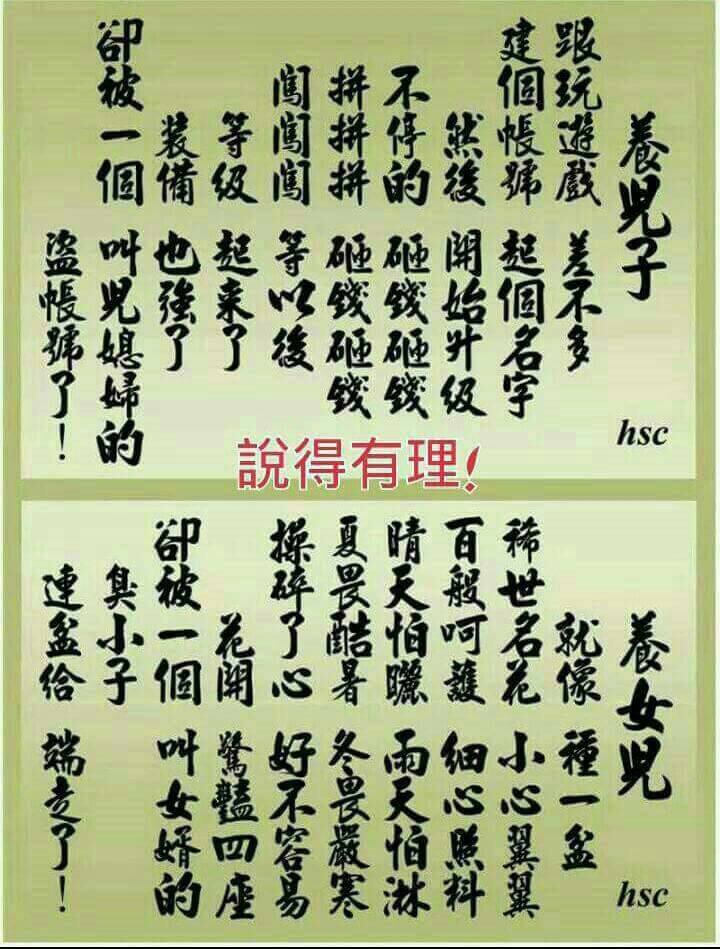 養兒子
跟玩遊戲 差不多
建個帳號 起個名字
然後 開始升級
不停的 砸錢砸錢
拼拼拼 砸錢砸錢
闖闖闖 等以後
等級 起來了
裝備 也強了
卻被一個 叫兒媳婦的
盜帳號了!
hsc
說得有理!
養女兒
就像 種一盆
稀世名花 小心翼翼
百般呵護 細心照料
晴天怕曬 雨天怕淋
夏畏酷暑 冬畏嚴寒
操碎了心 好不容易
花開 驚豔四座
卻被一個 叫女婿的
臭小子
連盆給 端走了!
hsc